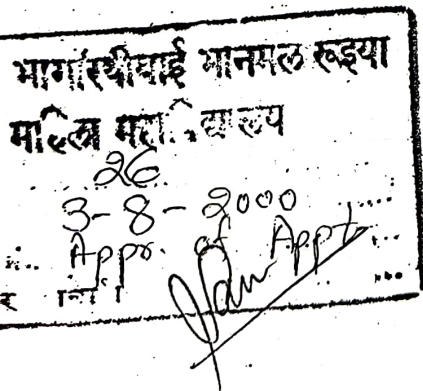 भागीरथीबाई मानमल रूइया
महिला महाविद्यालय
26
3-8-2000
Appr. of Appt